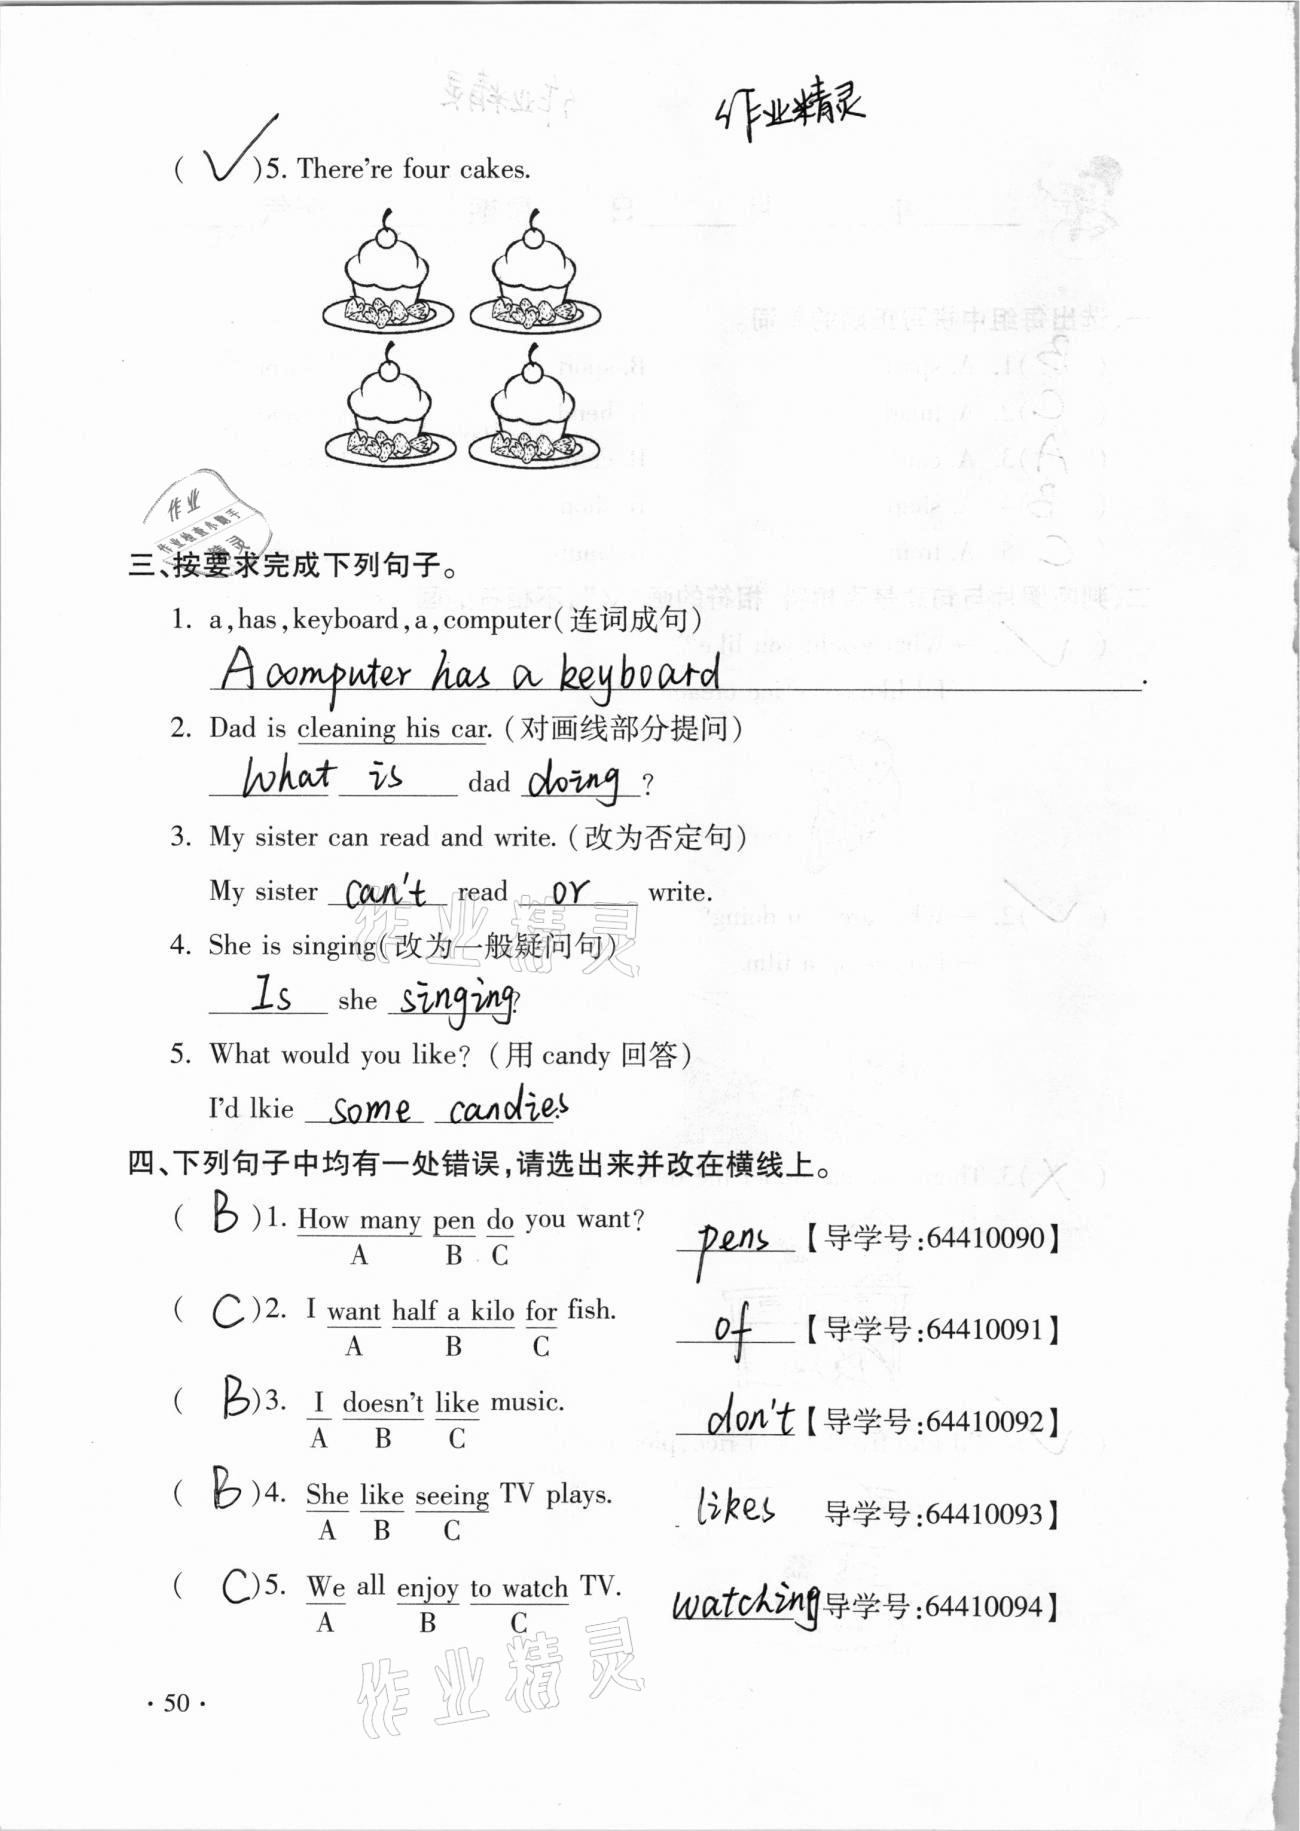 作业精灵
( ✓ )5. There're four cakes.
作业
作业检查小助手
精灵
三、按要求完成下列句子。
1. a,has,keyboard,a,computer(连词成句)
A computer has a keyboard.
2. Dad is cleaning his car.(对画线部分提问)
What is dad doing?
3. My sister can read and write.(改为否定句)
My sister can't read or write.
4. She is singing(改为一般疑问句)
Is she singing?
5. What would you like?(用 candy 回答)
I'd lkie some candies.
四、下列句子中均有一处错误,请选出来并改在横线上。
( B )1. How many pen do you want? pens 【导学号:64410090】
A B C
( C )2. I want half a kilo for fish. of 【导学号:64410091】
A B C
( B )3. I doesn't like music. don't 【导学号:64410092】
A B C
( B )4. She like seeing TV plays. likes 导学号:64410093】
A B C
( C )5. We all enjoy to watch TV. watching 导学号:64410094】
A B C
作业精灵
作业精灵
· 50 ·